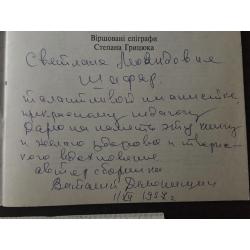 Віршовані епіграфи
Степана Грицюка
Светлана Леонидовна
Шафар.
талантливой пианистке
прекрасному педагогу
Дарю на память эту книгу
и желаю здоровья и творчес-
кого вдохновения
автор сборника
Виталий